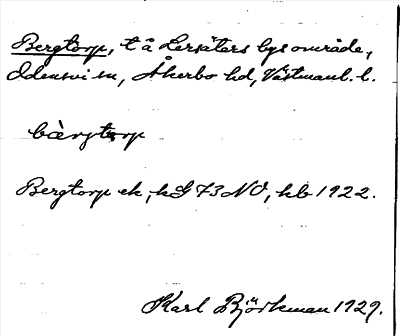 Bergtorp, t å Lersäters bys område,
Odensvi sn, Åkerbo hd, Västmanl. l.
bærgtorp
Bergtorp ek, kG 73 NO, hb 1922.
Karl Björkman 1929.